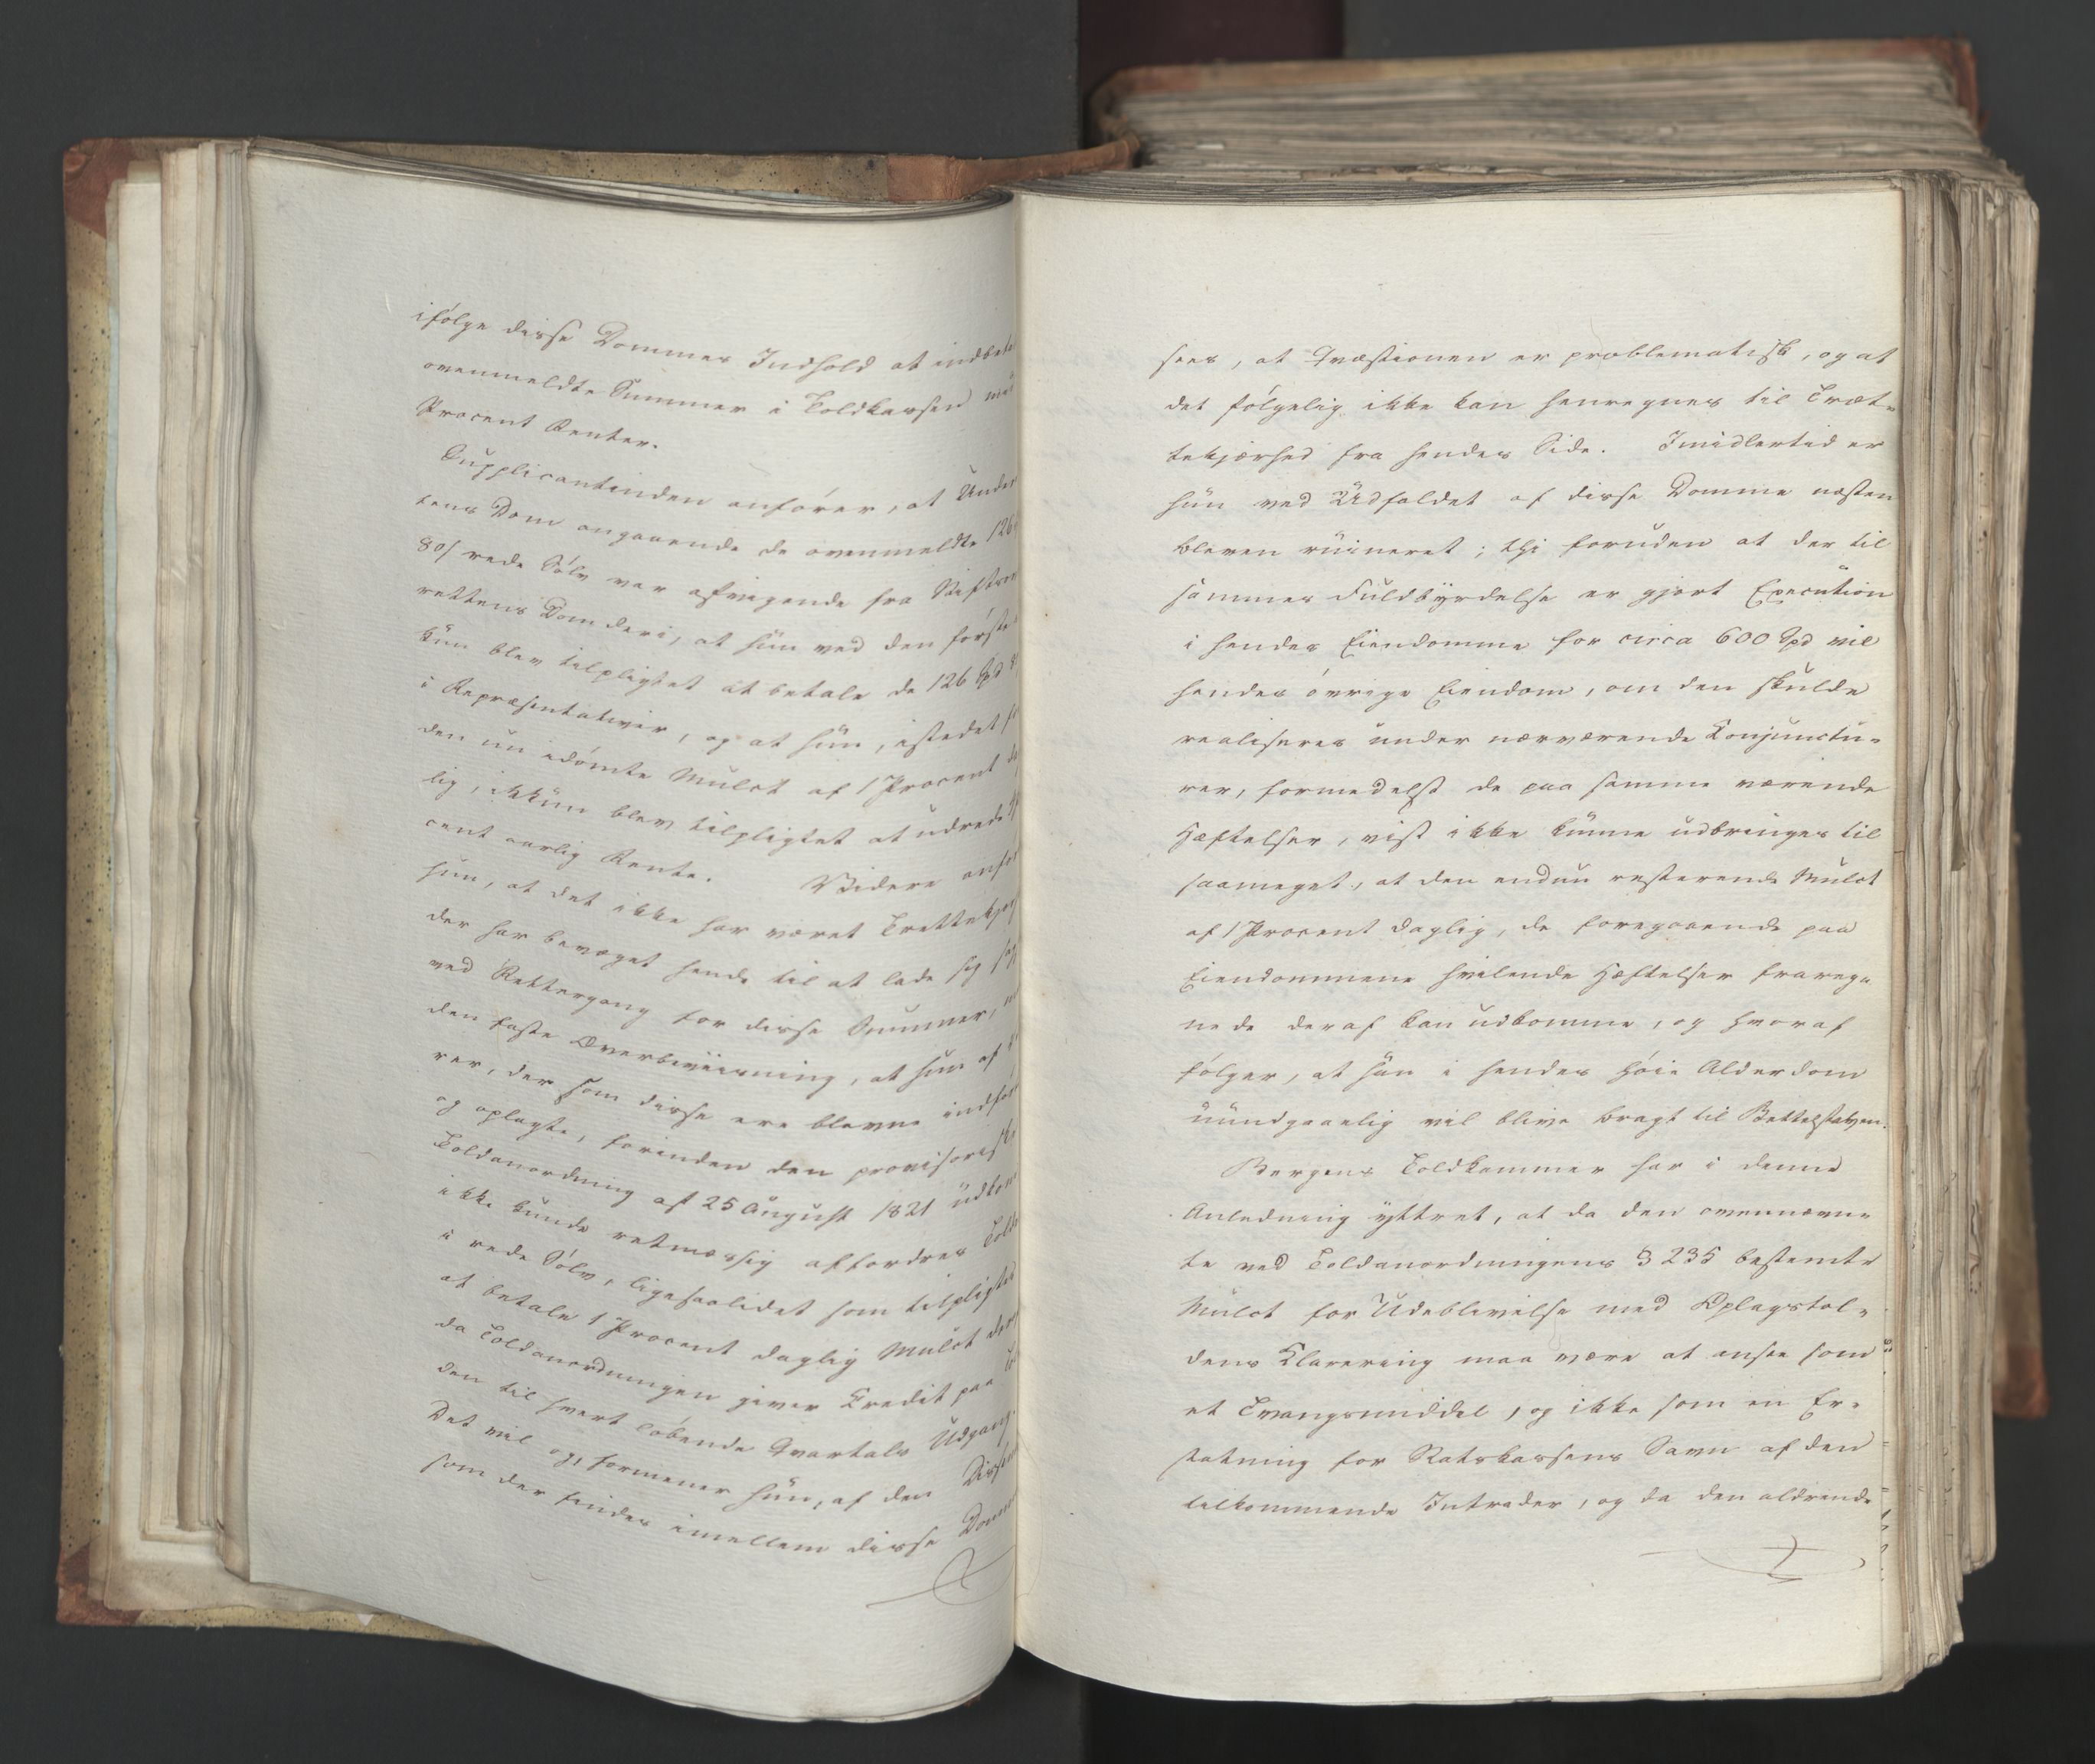 ifølge disse Dommes Indhold at indbeta
ovenmeldte Summer i Toldkassen med
Procent Renter.
Supplicantinden anfører, at Under
tens Dom angaaende de ovenmeldte 126
80 s rede Sølv var afvigende fra Stiftsover
rettens Dom deri, at hun ved den første
kun blev tilpligtet at betale de 126 Spd
i Repræsentativer, og at hun, istedet for
den nu idømte Mulct af 1 Procent da
lig, ikkun blev tilpligtet at udrede
cent aarlig Rente. Videre anfør
hun, at det ikke har været Trettekjær
der har bevæget hende til at lade sig
ved Rettergang for disse Summer,
den faste Overbeviisning, at hun af
rer, der som disse ere blevne indfør
og oplagte, forinden den provisoriske
Toldanordning af 25 August 1821 udkom
ikke kunde retmæssig affordres Told
i rede Sølv, ligesaalidet som tilpligtes
at betale 1 Procent daglig Mulct der
da Toldanordningen giver Credit paa
den til hvert løbende Qvartals Udgang.
Det vil og, formener hun, af den Dissen
som der findes imellem disse Domme
sees, at Qvæstionen er problematisk, og at
det følgelig ikke kan henregnes til Træt-
tekjærhed fra hendes Side. Imidlertid er
hun ved Udfaldet af disse Domme næsten
bleven ruineret; thi foruden at der til
sammes Fuldbyrdelse er gjort Execution
i hendes Eiendomme for circa 600 Spd vil
hendes øvrige Eiendom, om den skulde
realiseres under nærværende Conjunctu-
rer, formedelst de paa samme værende
Hæftelser, vist ikke kunne udbringes til
saameget, at den endnu resterende Mulct
af 1 Procent daglig, de foregaaende paa
Eiendommene hvilende Hæftelser frareg-
nede deraf kan udkomme, og hvoraf
følger, at hun i hendes høie Alderdom
uundgaaelig vil blive bragt til Bettelstaven.
Bergens Toldkammer har i denne
Anledning yttret, at da den ovennævn-
te ved Toldanordningens § 235 bestemte
Mulct for Udeblivelse med Oplagstol-
dens Clarering maa være at ansee som
et Tvangsmiddel, og ikke som en Er-
statning for Statskassens Savn af den
tilkommende Intrader, og da den aldrende